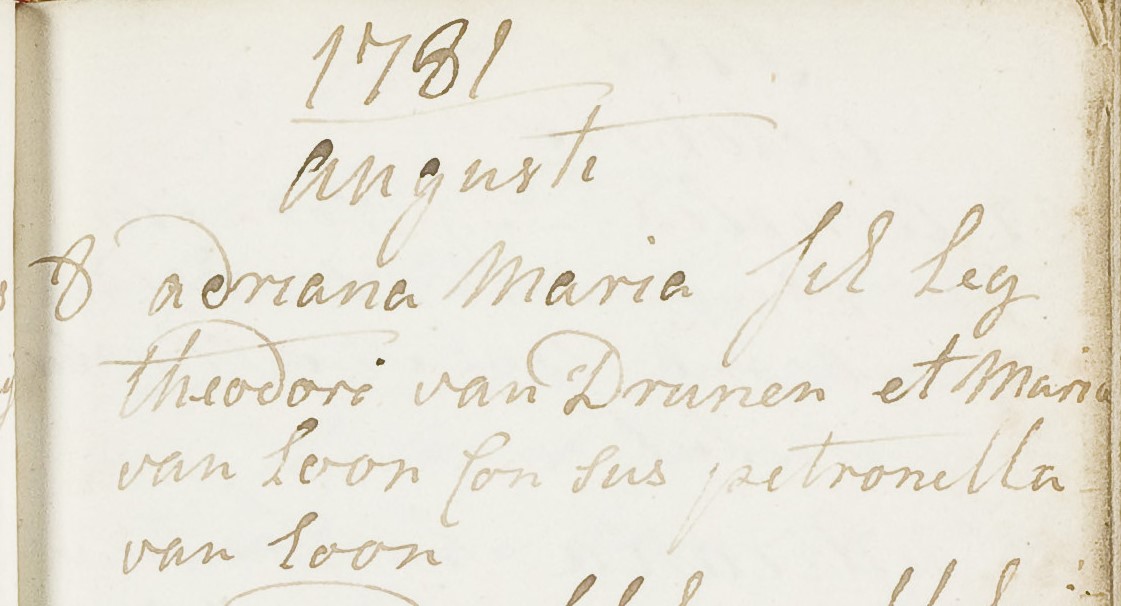 1781
augusti
8 adriana Maria fil leg
theodori van Drunen et Maria
van Loon Con sus petronella
van Loon